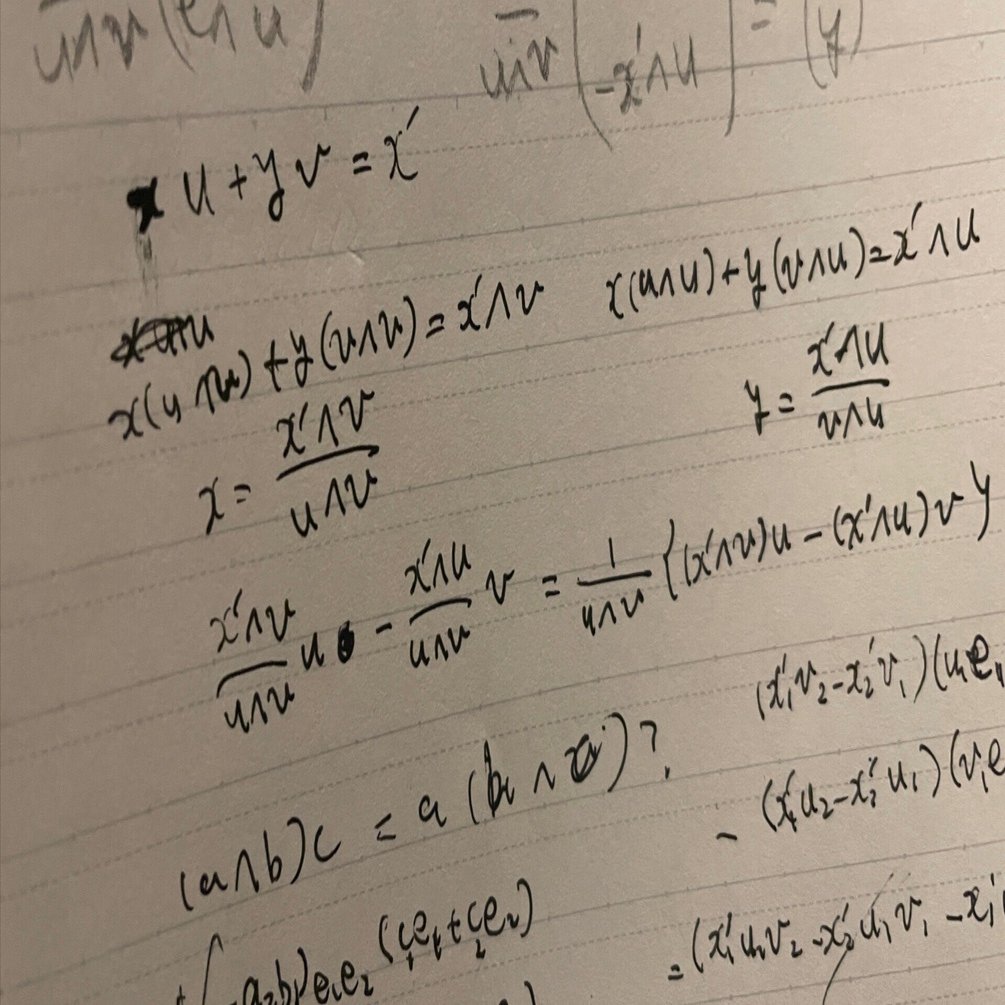 u∧v (e∧u)
u∧v ( -x'∧u ) = (y)
x u + y v = x'
x(u∧v) + y(v∧v) = x'∧v x(u∧u) + y(v∧u) = x'∧u
x = x'∧v / u∧v y = x'∧u / v∧u
x'∧v / u∧v u - x'∧u / u∧v v = 1 / u∧v {(x'∧v)u - (x'∧u)v}
(x'₁v₂ - x'₂v₁)(u₁e₁
- (x'₁u₂ - x'₂u₁)(v₁e
(a∧b)c = a(b∧c)?
a₂b₁)e₁e₂ (c₁e₁ + c₂e₂)
= (x'₁u₁v₂ - x'₂u₁v₁ - x'₁